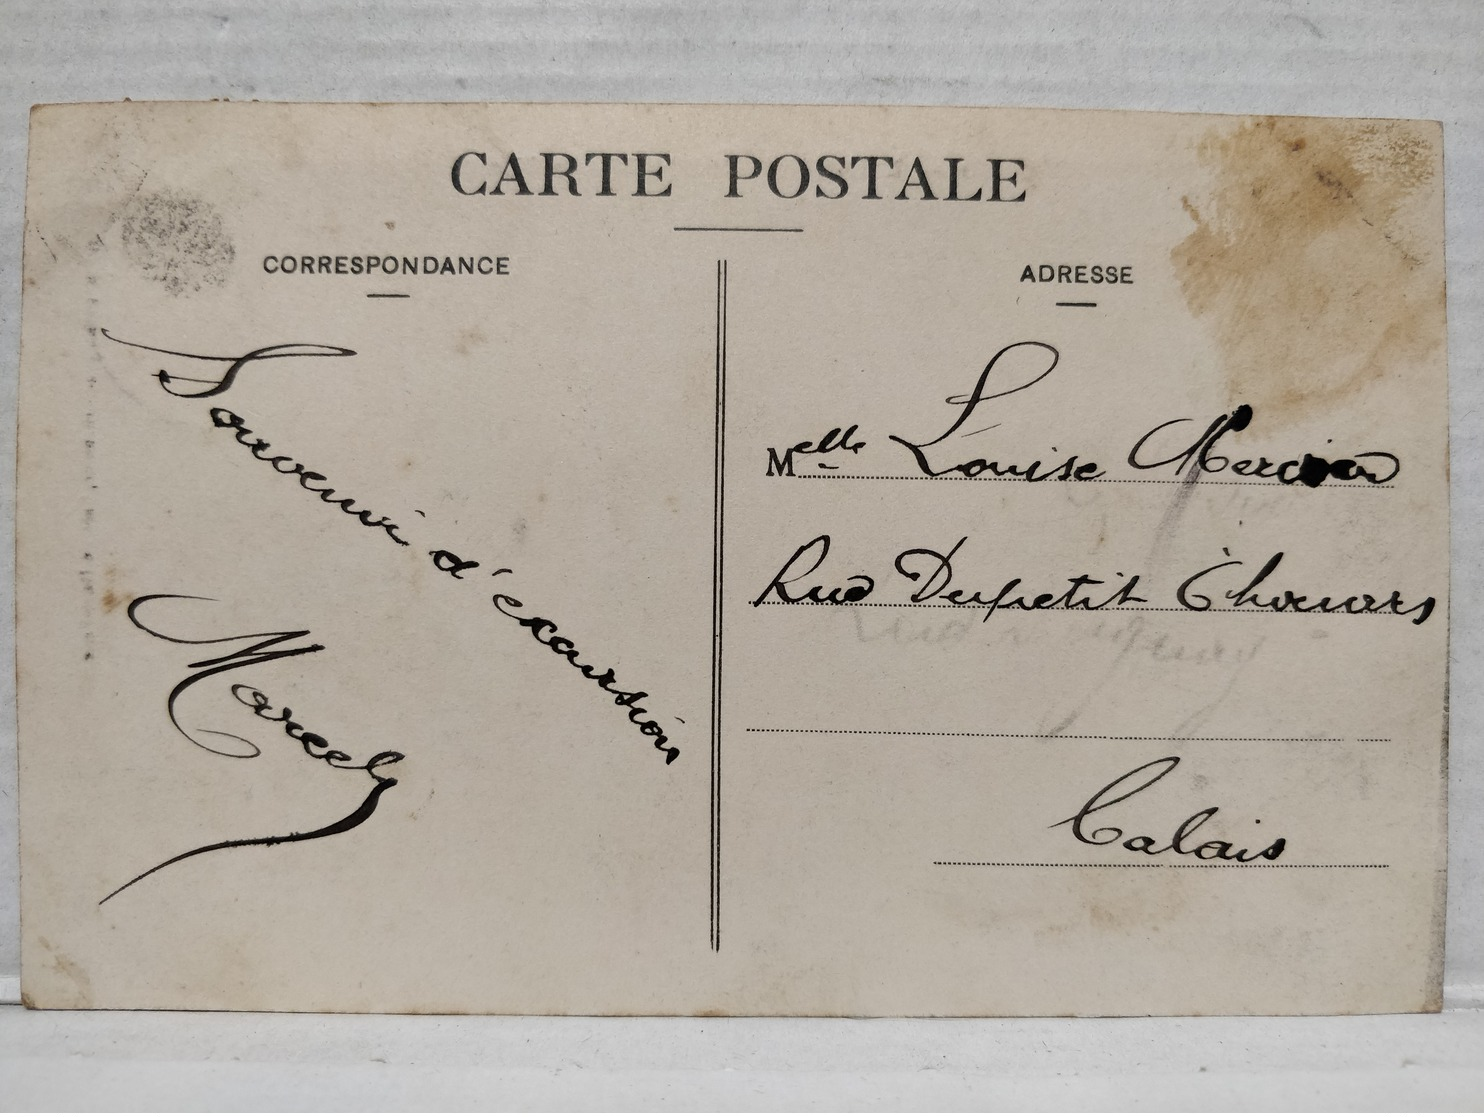 CARTE POSTALE
CORRESPONDANCE
Souvenir d'excursion
Marcel
ADRESSE
Melle Louise
Rue Dupetit Thouars
Calais